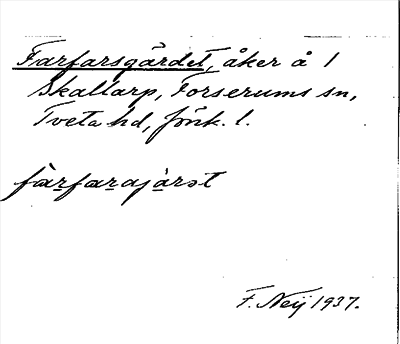 Farfarsgärdet, åker å 1
Skallarp, Forserums sn,
Tveta hd, Jönk. l.
fàrfarajàrət
F. Neij 1937.